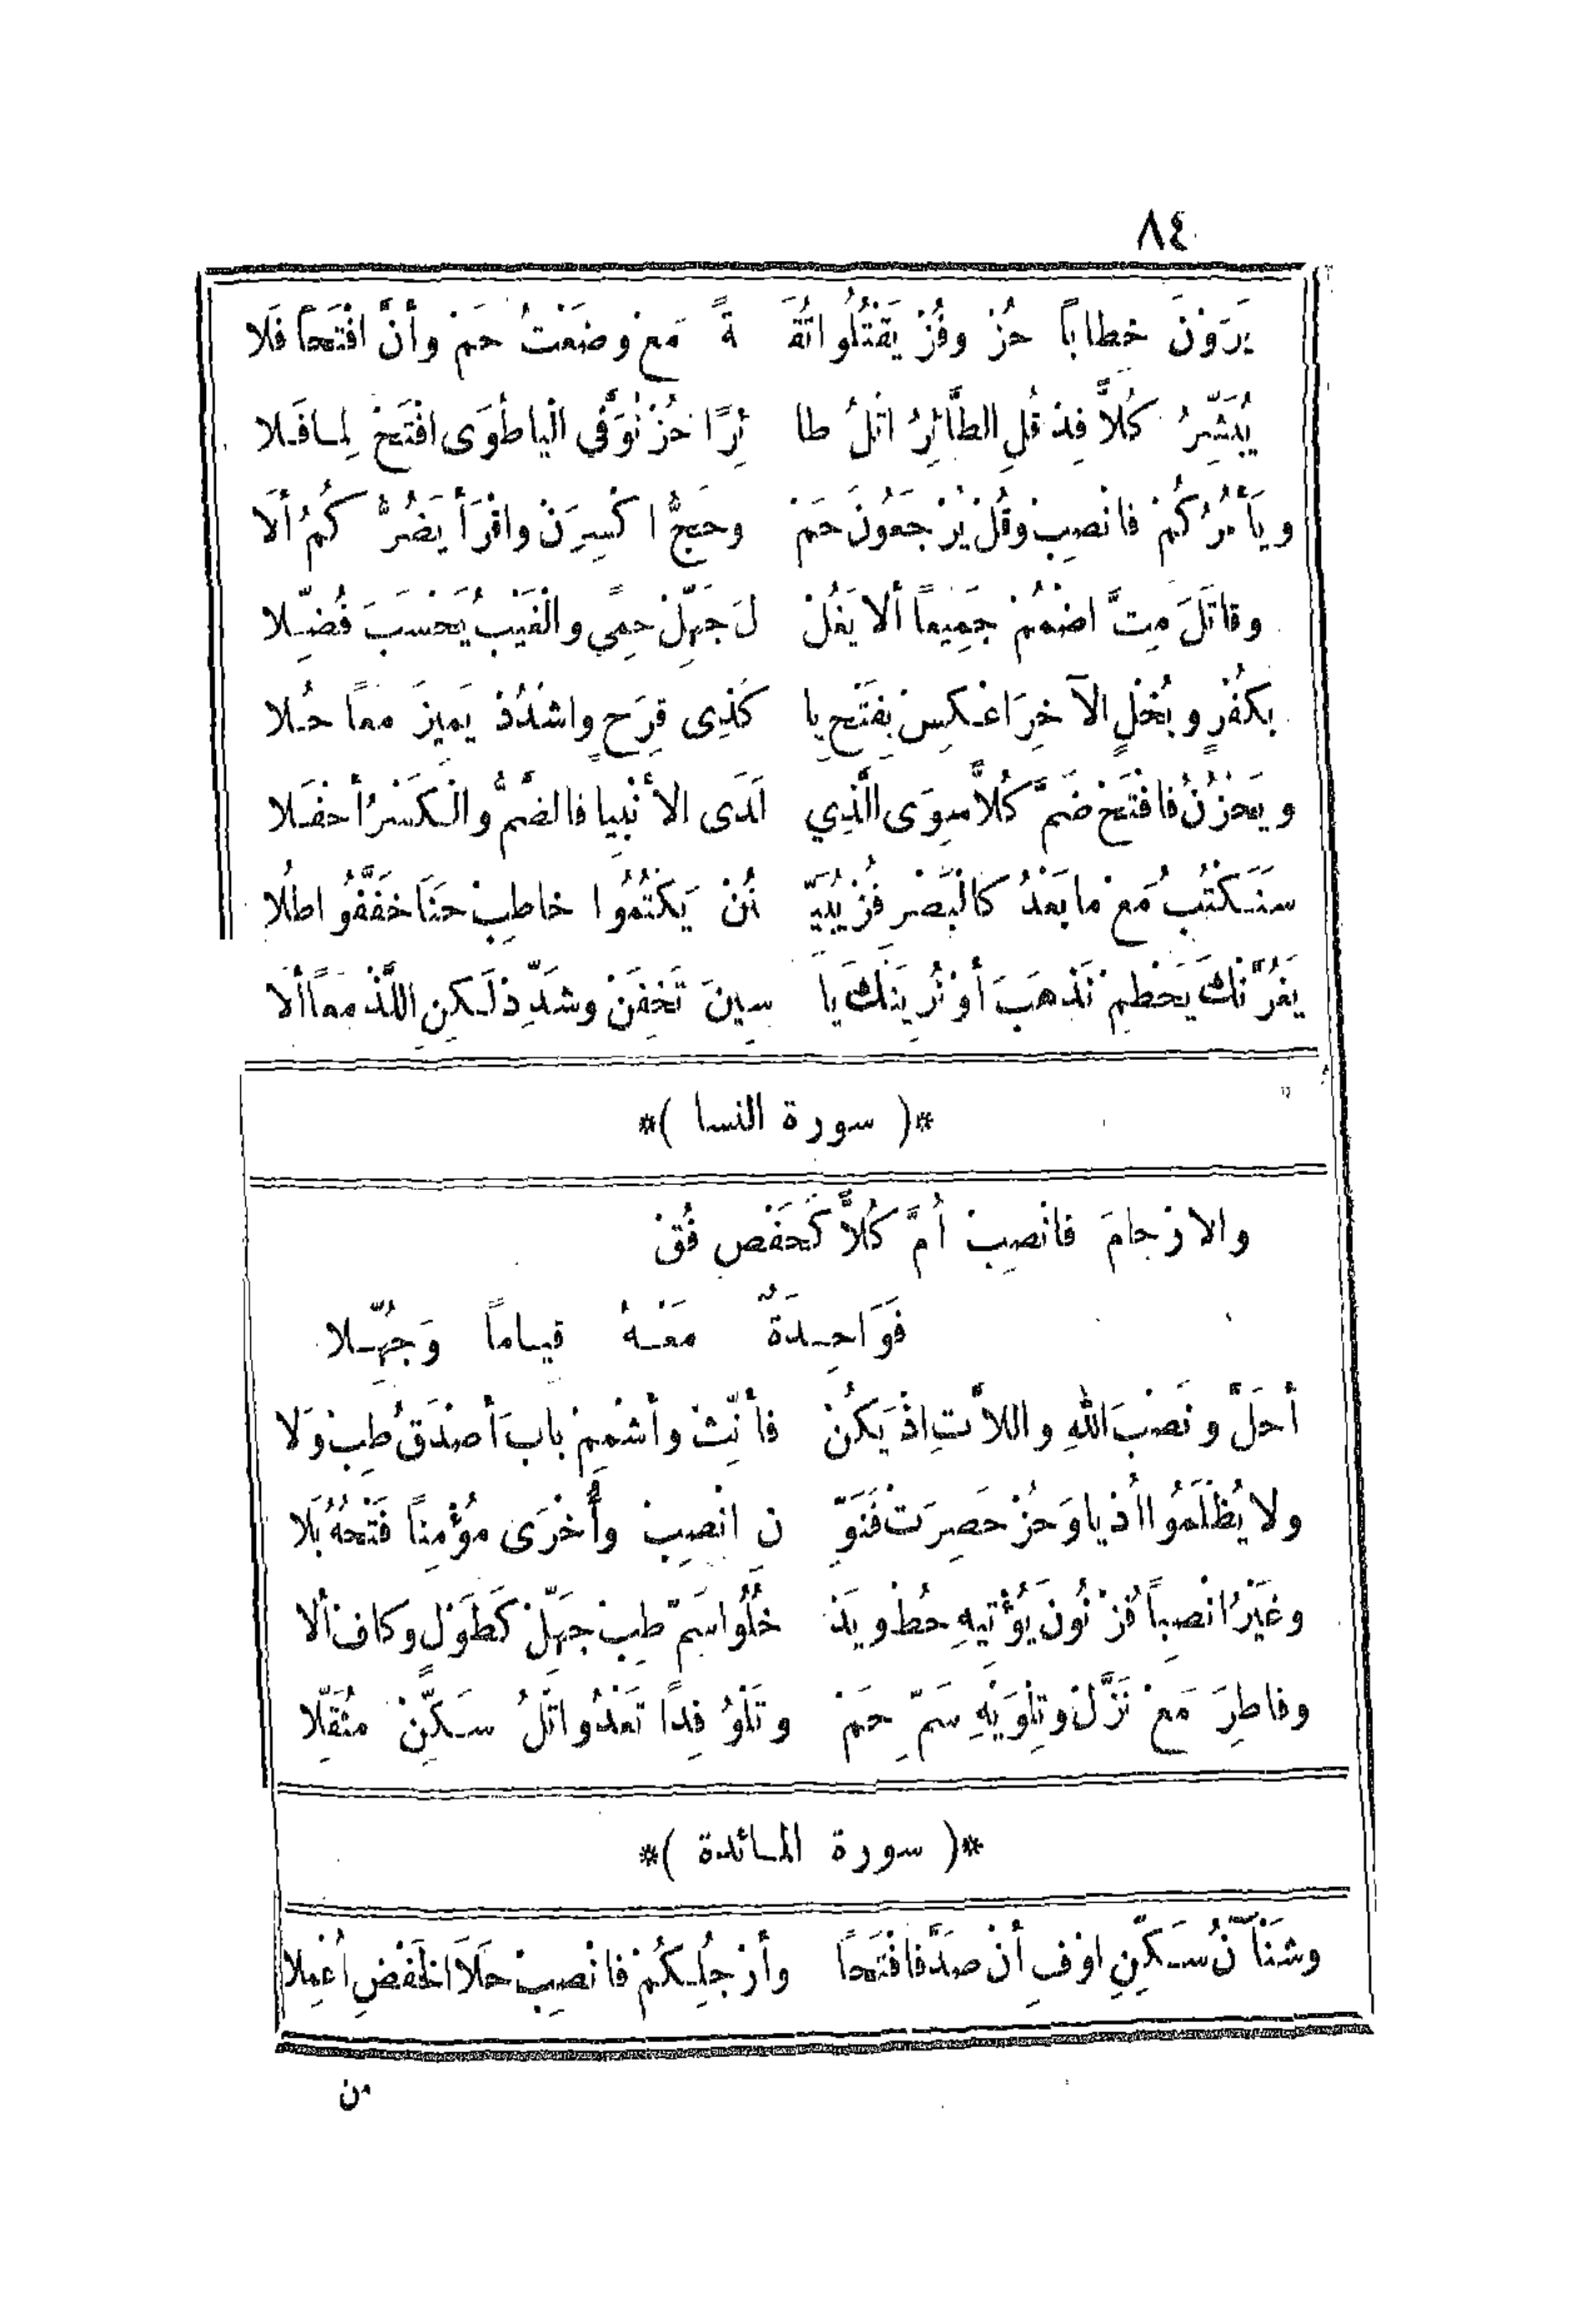 ٨٤
يَرَوْنَ خِطاباً حُزْ وفُزْ يَقْتُلُوا تُقَ ةً مَعْ وضَعْتُ حَمْ وأنَّ افْتَحاً فَلا
يُبَشِّرُ كُلاًّ فِدْ قُلِ الطَّائِرُ اتْلُ طا ئِرًا حُزْ نُوَفِّى الْيا طُوَى افْتَحْ لِما فَلا
ويَأْمُرُكُمْ فانْصِبْ وقُلْ يُرْجَعُونَ حَمْ وحَجُّ اكْسِرَنْ واقْرَأ يَضُرُّكُمُ ألَا
وقاتَلَ مِتَّ اضْمُمْ جَمِيعاً ألا يَغُلْ لَ جَهِّلْ حِمًى والْغَيْبُ يَحْسَبَ فُضِّلا
بِكُفْرٍ وبُخْلٍ الآخِرَ اعْكِسْ بِفَتْحِ يا كَذِى فَرَحٍ واشْدُدْ يَمِيزَ معاً حُلا
ويَحْزُنُ فافْتَحْ ضَمَّ كُلاًّ سِوَى الَّذِي لَدَى الأَنْبِيا فالضَّمُّ والْكَسْرُ أحْفَلا
سَنَكْتُبُ مَعْ ما بَعْدُ كالْبَصْرِ فُزْ يُبَيِّ نُنْ يَكْتُمُوا خاطِبْ حَنَا خَفِّفُوا طُلا
يَغُرَّنْكَ يَحْطِمْ نَذْهَبَ أوْ نُرِيَنْكَ يا سِينَ تَخِفَنْ وشَدِّدْ لَكِنِ اللَّذْ معاً ألَا
*( سورة النسا )*
والارْحامَ فانْصِبْ أُمَّ كُلاًّ كَحَفْصٍ فُقْ
فَوَاحِدَةٌ مَعْهُ قِياماً وَجُهِّلا
أحَلَّ ونَصْبَ اللهِ واللاَّتِ ادْ يَكُنْ فأنِّثْ وأشْمِمْ بابَ أصْدَقُ طِبْ وَلا
ولا يُظْلَمُوا أُدْ يا وَحُزْ حَصِرَتْ فَنَوِّ نِ انْصِبْ وأُخْرَى مُؤْمِناً فَتْحُهُ بَلا
وغَيْرُ انْصِباً فُزْ نُونَ يُؤْتِيهِ حُطْ ويَدْ خُلُوا سَمِّ طِبْ جَهِّلْ كَطَوْلٍ وكافَ ألا
وفاطِرَ مَعْ نَزَّلْ وتِلْوَيْهِ سَمِّ حَمْ وتَلْوُ فِداً تَعْدُو اتْلُ سَكِّنْ مُثَقِّلا
*( سورة المائدة )*
وشَنْآنُ سَكِّنِ اوْفِ أنْ صَدَّ فافْتَحًا وأرْجُلِكُمْ فانْصِبْ حَلَا الخَفْضِ أُعْمِلا
من